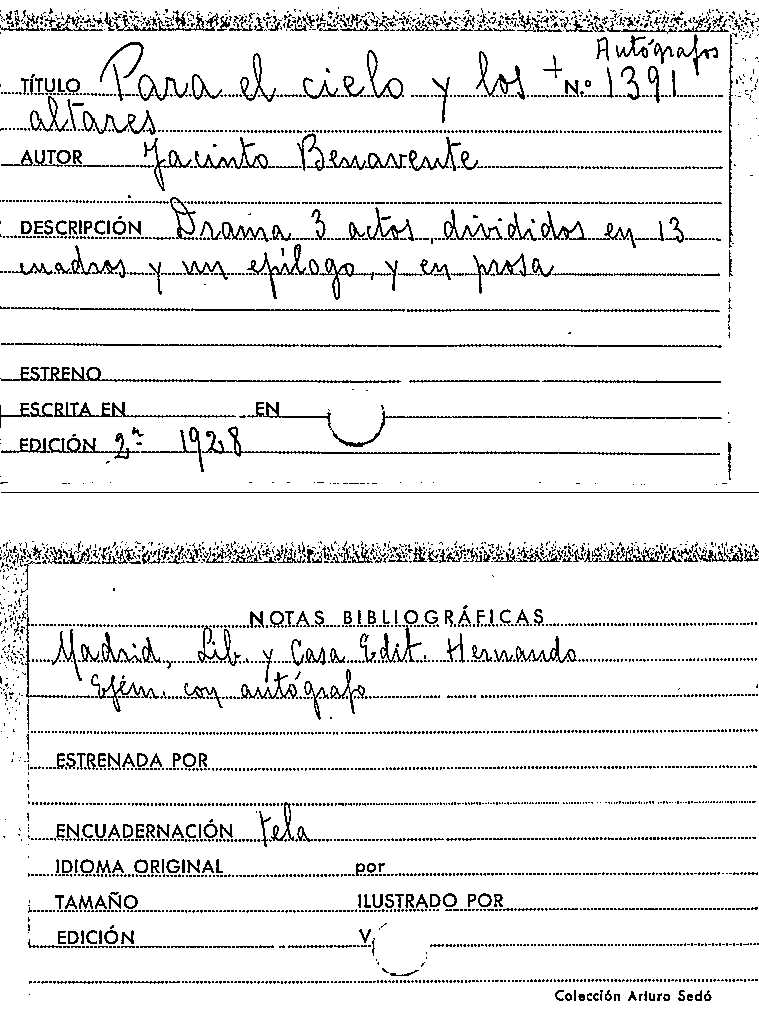 Autógrafos
TÍTULO Para el cielo y los + N.º 1391
altares
AUTOR Jacinto Benavente
DESCRIPCIÓN Drama 3 actos, divididos en 13
cuadros y un epílogo, y en prosa
ESTRENO
ESCRITA EN EN
EDICIÓN 2ª 1928
NOTAS BIBLIOGRÁFICAS
Madrid, Lib. y Casa Edit. Hernando
Ejém. con autógrafo
ESTRENADA POR
ENCUADERNACIÓN tela
IDIOMA ORIGINAL por
TAMAÑO ILUSTRADO POR
EDICIÓN V
Colección Arturo Sedó